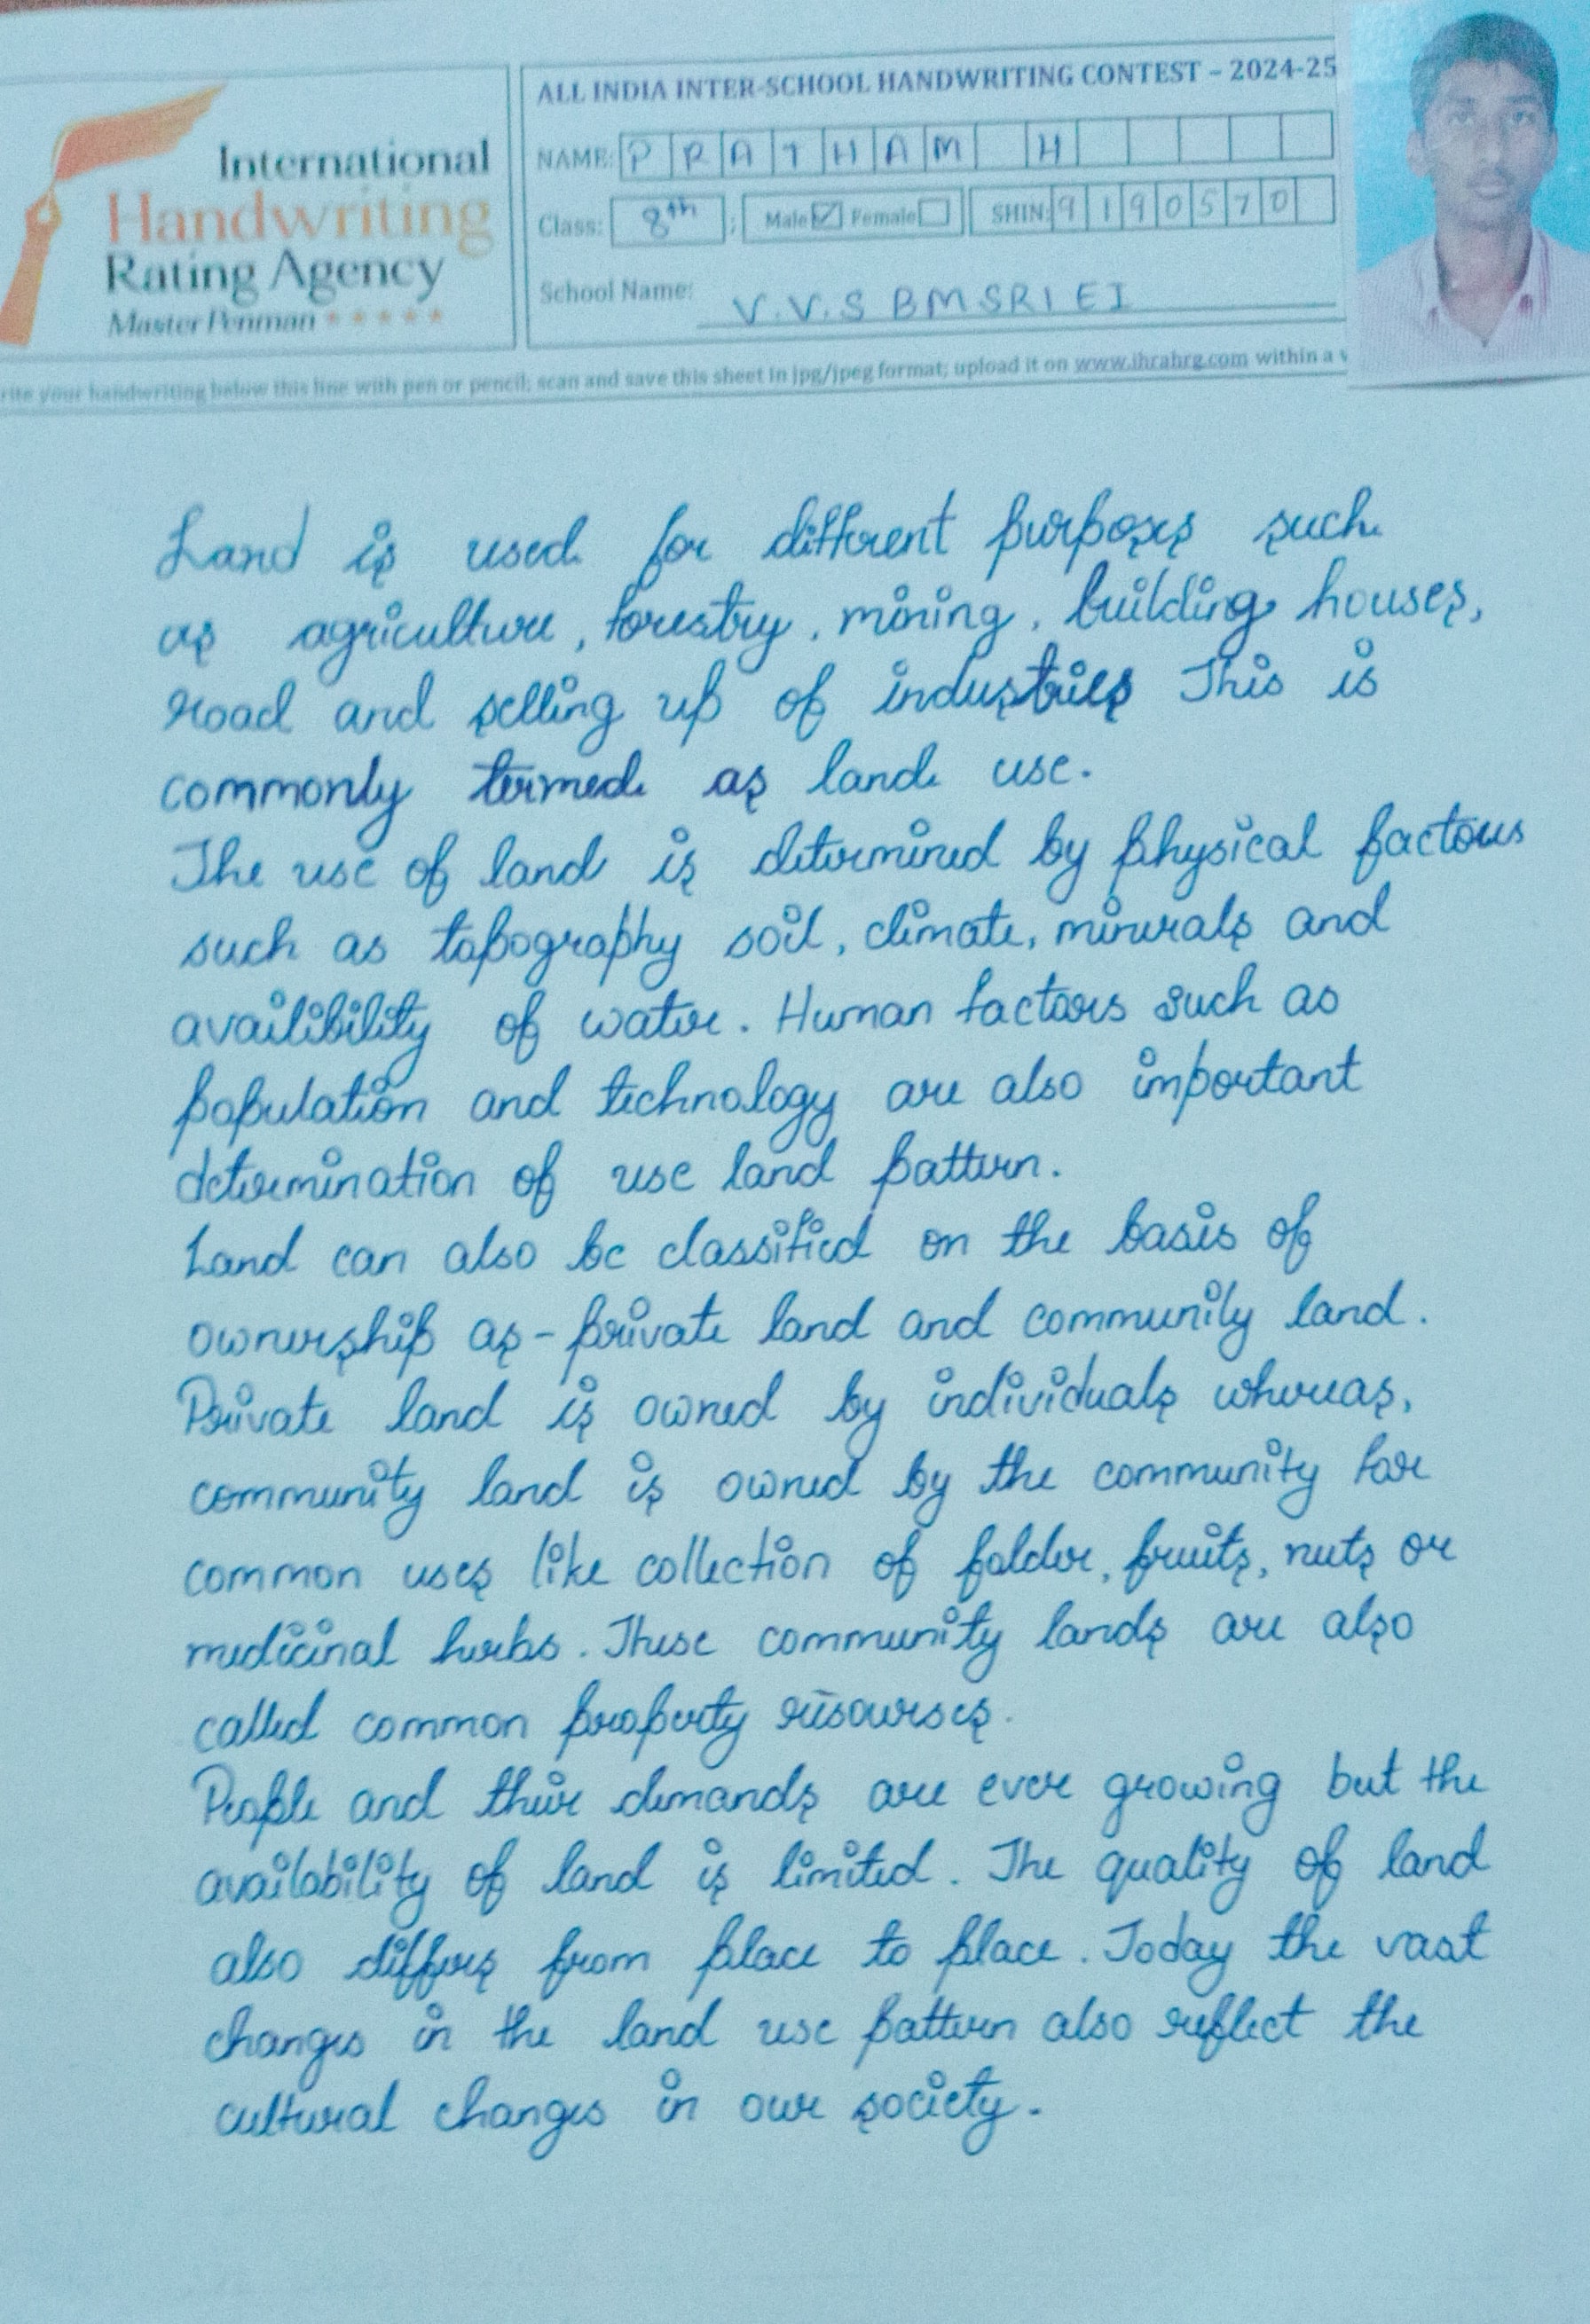 ALL INDIA INTER-SCHOOL HANDWRITING CONTEST – 2024-25
International
Handwriting
Rating Agency
Master Penman
NAME: PRATHAM H
Class: 8th ; Male ☑ Female ☐ SHIN: 9190570
School Name: V.V.S BMSRI EI
rite your handwriting below this line with pen or pencil; scan and save this sheet in jpg/jpeg format; upload it on www.ihrahrg.com within a
Land is used for different purposes such
as agriculture, forestry, mining, building houses,
road and selling up of industries This is
commonly termed as land use.
The use of land is determined by physical factors
such as topography soil, climate, minerals and
availibility of water. Human factors such as
population and technology are also important
determination of use land pattern.
Land can also be classified on the basis of
ownership as - private land and community land.
Private land is owned by individuals whereas,
community land is owned by the community for
common uses like collection of folder, fruits, nuts or
medicinal herbs. These community lands are also
called common property resourses.
People and their demands are ever growing but the
availability of land is limited. The quality of land
also differs from place to place. Today the vast
changes in the land use pattern also reflect the
cultural changes in our society.